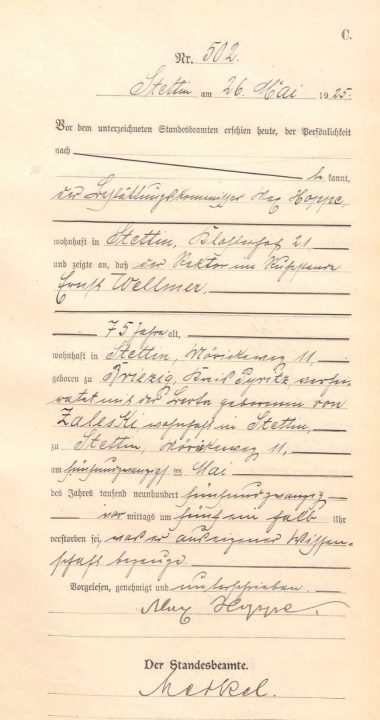 C.
Nr. 502.
Stettin am 26. Mai 1925.
Vor dem unterzeichneten Standesbeamten erschien heute, der Persönlichkeit
nach be kannt,
der Bestattungskommissar Max Hoppe,
wohnhaft in Stettin, Klosterhof 21
und zeigte an, daß der Rektor im Ruhestande
Ernst Wellmer,
75 Jahre alt,
wohnhaft in Stettin, Mörickeweg 11,
geboren zu Briezig, Kreis Pyritz, verhei-
ratet mit der Berta geborenen von
Zaleski wohnhaft in Stettin,
zu Stettin, Mörickeweg 11,
am fünfundzwanzigsten Mai
des Jahres tausend neunhundert fünfundzwanzig
vor mittags um fünf ein halb Uhr
verstorben sei, was er aus eigener Wissen-
schaft bezeuge.
Vorgelesen, genehmigt und unterschrieben.
Max Hoppe.
Der Standesbeamte.
Merkel.